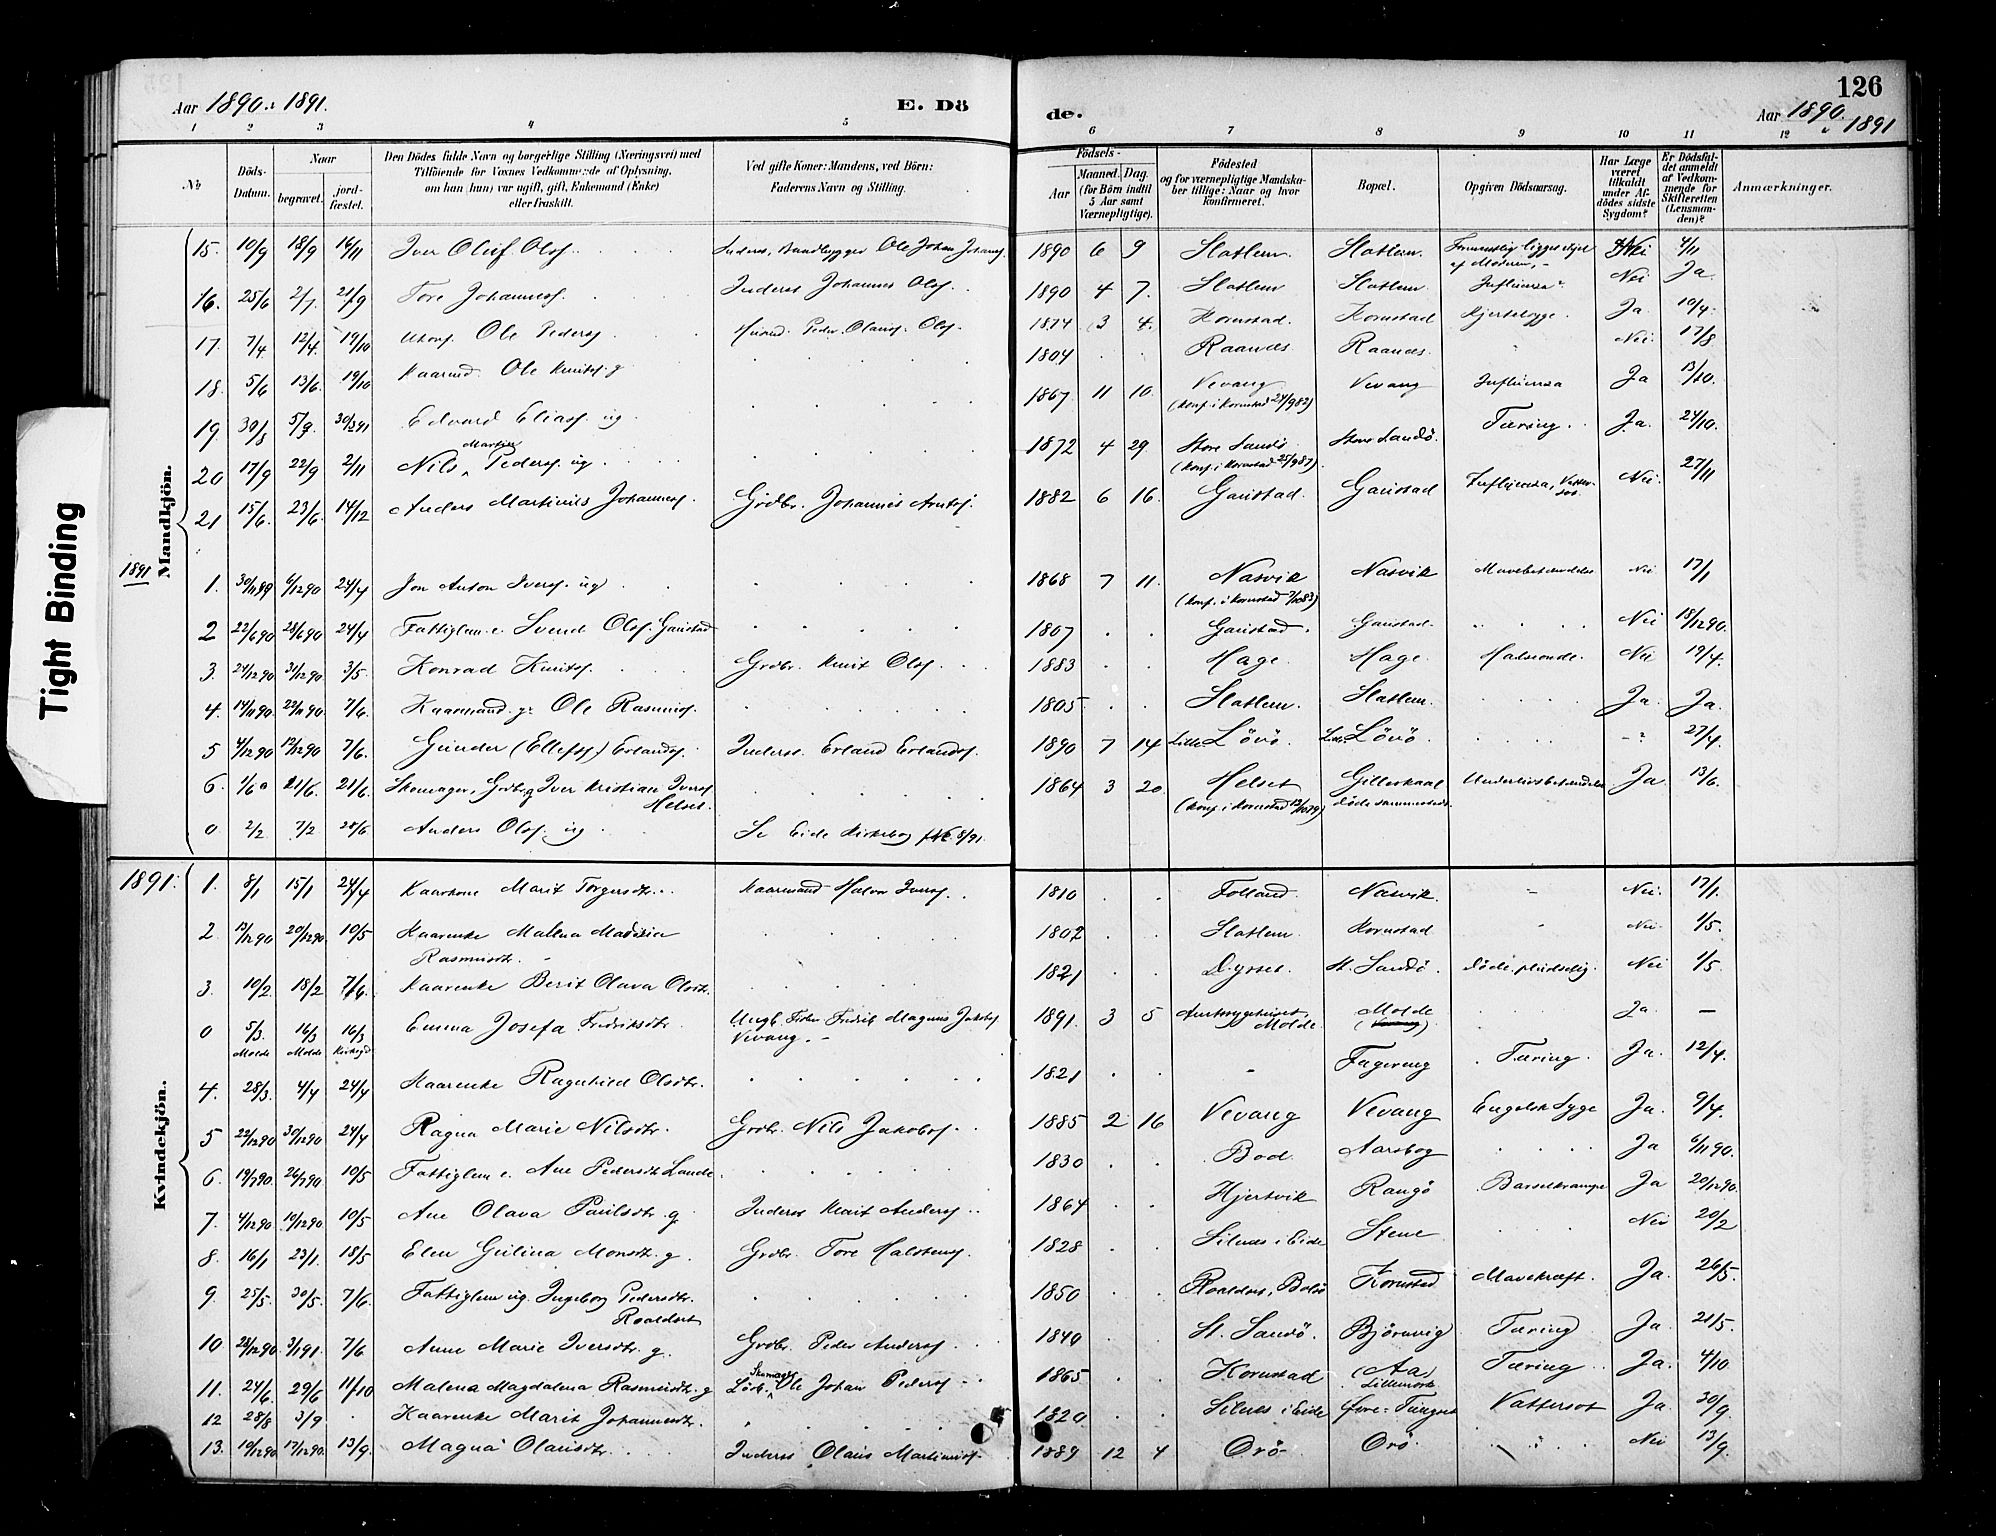 126
Aar 1890 : 1891.
E. Dö
de.
Aar 1890 : 1891
1 2 3 4 5 6 7 8 9 10 11 12
No
Döds-Datum.
Naar
begravet.
jord-fæstet.
Den Dödes fulde Navn og borgerlige Stilling (Næringsvei) med
Tilföiende for Voxnes Vedkommende af Oplysning,
om han (hun) var ugift, gift, Enkemand (Enke)
eller fraskilt.
Ved gifte Koner: Mandens, ved Börn:
Faderens Navn og Stilling.
Födsels-
Aar
Maaned. Dag.
(for Börn indtil
5 Aar samt
Værnepligtige).
Födested
og for værnepligtige Mandska-
ber tillige: Naar og hvor
konfirmeret.
Bopæl.
Opgiven Dödsaarsag.
Har Læge
været
tilkaldt
under Af-
dödes sidste
Sygdom?
Er Dödsfal-
det anmeldt
af Vedkom-
mende for
Skifteretten
(Lensman-
den)?
Anmærkninger.
Tight Binding
Mandkjön.
15. 10/9 18/9 16/11 Iver Oluf Olsf. Inderst, Baadbygger Ole Johan Johans. 1890 6 9 Slatlem. Slatlem. Nei 4/11
16. 25/6 2/7. 21/9 Tore Johannesf. Inderst Johannes Olsf. 1890 4 7. Slatlem Slatlem Influensa Nei Ja.
17. 7/4 12/4. 19/10 Ole Pedersf. Peder Olsf. 1874 3 4. Kornstad. Kornstad Ja. 10/4.
18. 5/6 13/6. 19/10 Kaarmd. Ole Knutsf. g 1804 Raanes Raanes. Nei. 17/8
19 30/8 5/9. Edvard Eliasf. ug. 1867 11 10. Vevang (konf. i Kornstad 24/9 82) Vevang Influensa Ja 13/10.
20 17/9 22/9 2/11 Nils Martin Pedersf. ug. 1872 4 29 Store Sandö. (konf. i Kornstad 25/9 87) Store Sandö. Tæring. Ja. 24/10.
21 15/6. 23/6. 14/12 Anders Martinus Johannesf. Grdbr. Johannes Arntsf. 1882 6 16. Gaustad. Gaustad Influensa, Vatter-sot. Nei. 27/11
1891
1. 30/11 89 6/12 90 24/4 Jon Anton Iversf. ug 1868 7 11. Nasvik (konf. i Kornstad 7/10 83) Nasvik Nei 17/1
2 22/6 90 28/6 90 24/4 Fattiglem e. Svend Olsf. Gaustad 1807 Gaustad. Gaustad. Nei 18/12 90.
3. 24/12 90 31/12 90. 3/5. Konrad Knutsf. Grdbr. Knut Olsf. 1883 Hage. Hage. Halsonde. Nei 19/4.
4. 14/11 90. 22/11 90. 7/6. Kaarmand g. Ole Rasmusf. 1805. Slatlem. Slatlem. Ja. Ja.
5 4/12 90 12/12 90 7/6. Gunder (Ellefsf.) Erlandsf. Inderst Erland Erlandsf. 1890 7 14 Lille Lövö. Lille Lövö 27/4.
6. 21/6. 21/6. Skomager, Grdbr. g Iver Kristian Iversf. Helset. 1864 3 20. Helset Underlivsbetændelse Ja. 13/6.
0 2/2 7/2 28/6 Anders Olsf. ug. Se Eide Kirkebog No. 8/91.
1891.
Kvindekjön.
1. 8/1 15/1 24/4 Kaarkone Marit Torgersdtr. Kaarmand Halvor Iversf. 1810 Folland. Nasvik. Nei. 17/1.
2. 20/12 90. 10/5 Kaarenke Malena Rasmusdtr. 1802 Slatlem. Kornstad Nei 1/5.
3. 10/2. 18/2 7/6. Kaarenke Berit Olava Olsdtr. 1821 Dyrset. St. Sandö. Döde pludselig. Nei 1/5.
0 5/3. Molde 16/3 Molde 16/3 Emma Josefa Fredriksdtr. Ungk. Fisker Fredrik Magnus Jakobsf. Vevang. 1891. 3 5 Amtssygehuset, Molde. Molde (Vevang) Ja.
4. 28/3. 4/4 24/4 Kaarenke Ragnhild Olsdtr. 1821 Fagereng Tæring. Ja. 12/4.
5 22/12 90 30/12 90 24/4 Ragna Marie Nilsdtr. Grdbr. Nils Jakobsf. 1885 2 16 Vevang Vevang Engelsk Syge Ja. 9/4.
6. 19/7 90. 26/7 90. 10/5 Fattiglem e. Ane Pedersdtr. Lande 1830 Bod. Aarsbog Ja 6/11 90.
7. 4/12 90 10/12 90. 10/5. Ane Olava Paulsdtr. g. Inderst Knut Andersf. 1864 Hjertvik Rangö Barselkrampe Ja 20/12 90.
8. 16/1 23/1. 18/5 Elen Gulina Monsdtr. g. Grdbr. Tore Halstensf. 1828 Silnes i Eide Stene Nei 20/2
9. 25/5. 30/5. 7/6. Fattiglem ug. Ingeborg Pedersdtr. Roaldset 1850 Roaldset, Bolsö Kornstad Mavekræft. Ja. 26/5.
10. 24/12 90. 3/1 91. 7/6 Anne Marie Iversdtr. g. Grdbr. Peder Andersf. 1840 St. Sandö. Björnvig Tæring Ja. 21/5.
11. 24/6. 29/6 11/10 Malena Magdalena Rasmusdtr. g Skomager Ole Johan Pedersf. 1865 Kornstad (Aa) Tæring Ja. 4/10
12 28/8 3/9. Kaarenke Marit Johannesdtr. 1820 Silnes i Eide Vattersot Ja. 30/9.
13. 10/12 90 17/12 90. 13/9. Magna Olausdtr. Inderst Olaus Martinusf. 1889 12 4 Orö Orö. Nei 13/9.